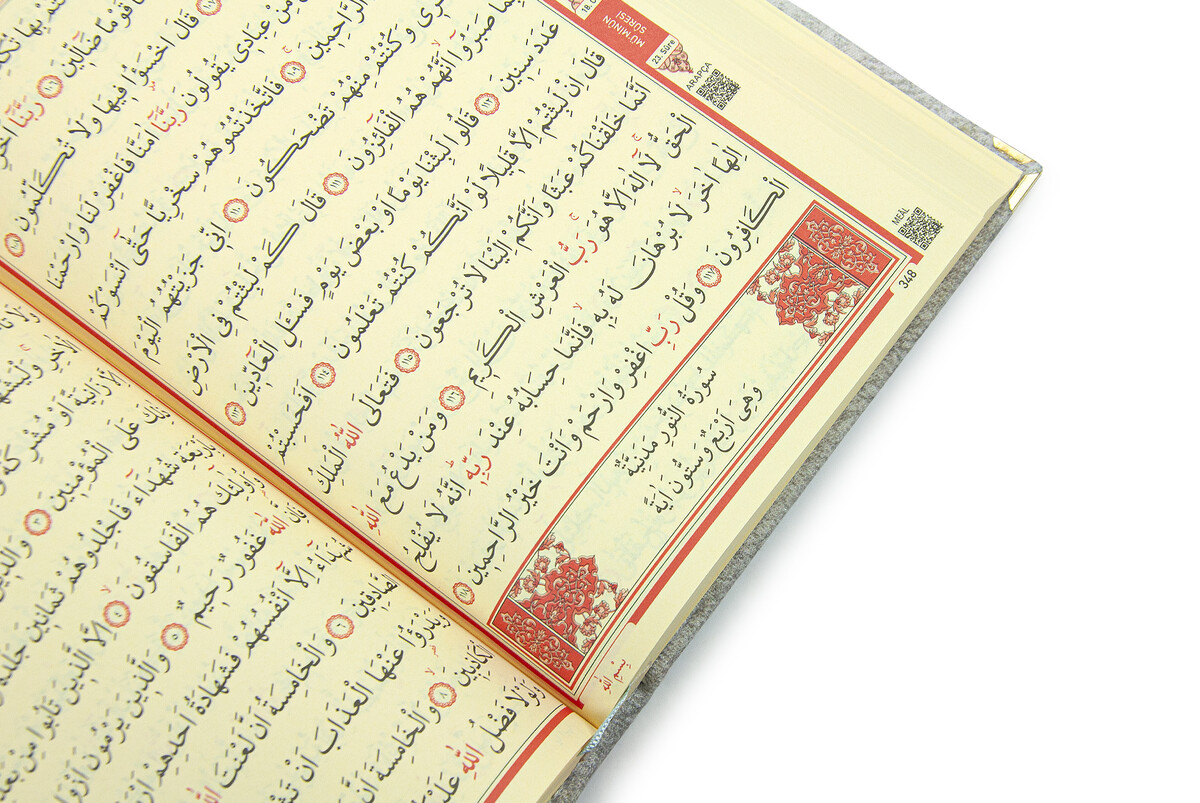 23. Sûre
MÜ'MİNÛN
SÛRESİ
ARAPÇA
قَوْمًا ضَٓالّ۪ينَ ﴿١٠٦﴾ رَبَّنَٓا
قَالَ اخْسَؤُ۫ا ف۪يهَا وَلَا تُكَلِّمُونِ ﴿١٠٨﴾
مِنْ عِبَاد۪ي يَقُولُونَ رَبَّنَٓا اٰمَنَّا فَاغْفِرْ لَنَا وَارْحَمْنَا
الرَّاحِم۪ينَ ﴿١٠٩﴾ فَاتَّخَذْتُمُوهُمْ سِخْرِيًّا حَتّٰٓى اَنْسَوْكُمْ
وَكُنْتُمْ مِنْهُمْ تَضْحَكُونَ ﴿١١٠﴾ اِنّ۪ي جَزَيْتُهُمُ الْيَوْمَ
بِمَا صَبَرُٓوا اَنَّهُمْ هُمُ الْفَٓائِزُونَ ﴿١١١﴾ قَالَ كَمْ لَبِثْتُمْ فِي الْاَرْضِ
عَدَدَ سِن۪ينَ ﴿١١٢﴾ قَالُوا لَبِثْنَا يَوْمًا اَوْ بَعْضَ يَوْمٍ فَسْـَٔلِ الْعَٓادّ۪ينَ ﴿١١٣﴾
قَالَ اِنْ لَبِثْتُمْ اِلَّا قَل۪يلًا لَوْ اَنَّكُمْ كُنْتُمْ تَعْلَمُونَ ﴿١١٤﴾ اَفَحَسِبْتُمْ
اَنَّمَا خَلَقْنَاكُمْ عَبَثًا وَاَنَّكُمْ اِلَيْنَا لَا تُرْجَعُونَ ﴿١١٥﴾ فَتَعَالَى اللّٰهُ الْمَلِكُ
الْحَقُّ لَٓا اِلٰهَ اِلَّا هُوَ رَبُّ الْعَرْشِ الْكَر۪يمِ ﴿١١٦﴾ وَمَنْ يَدْعُ مَعَ اللّٰهِ
اِلٰهًا اٰخَرَ لَا بُرْهَانَ لَهُ بِه۪ فَاِنَّمَا حِسَابُهُ عِنْدَ رَبِّه۪ اِنَّهُ لَا يُفْلِحُ
الْكَافِرُونَ ﴿١١٧﴾ وَقُلْ رَبِّ اغْفِرْ وَارْحَمْ وَاَنْتَ خَيْرُ الرَّاحِم۪ينَ ﴿١١٨﴾
سُورَةُ النُّورِ مَدَنِيَّةٌ
وَهِيَ اَرْبَعٌ وَسِتُّونَ اٰيَةً
MEÂL
348
بِسْمِ اللّٰهِ
اِلَّا زَانِيَةً اَوْ مُشْرِكَةً
عَلَى الْمُؤْمِن۪ينَ ﴿٣﴾ وَالَّذ۪ينَ
بِاَرْبَعَةِ شُهَدَٓاءَ فَاجْلِدُوهُمْ ثَمَان۪ينَ جَلْدَةً
وَاُو۬لٰٓئِكَ هُمُ الْفَاسِقُونَ ﴿٤﴾ اِلَّا الَّذ۪ينَ تَابُوا مِنْ بَعْدِ
فَاِنَّ اللّٰهَ غَفُورٌ رَح۪يمٌ ﴿٥﴾ وَالَّذ۪ينَ يَرْمُونَ اَزْوَاجَهُمْ
شُهَدَٓاءُ اِلَّٓا اَنْفُسُهُمْ فَشَهَادَةُ اَحَدِهِمْ
الصَّادِق۪ينَ ﴿٦﴾ وَالْخَامِسَةُ اَنَّ لَعْنَتَ اللّٰهِ
وَيَدْرَؤُ۬ا عَنْهَا الْعَذَابَ اَنْ
الْكَاذِب۪ينَ ﴿٨﴾ وَالْخَامِسَةَ اَنَّ
وَلَوْلَا فَضْلُ اللّٰهِ